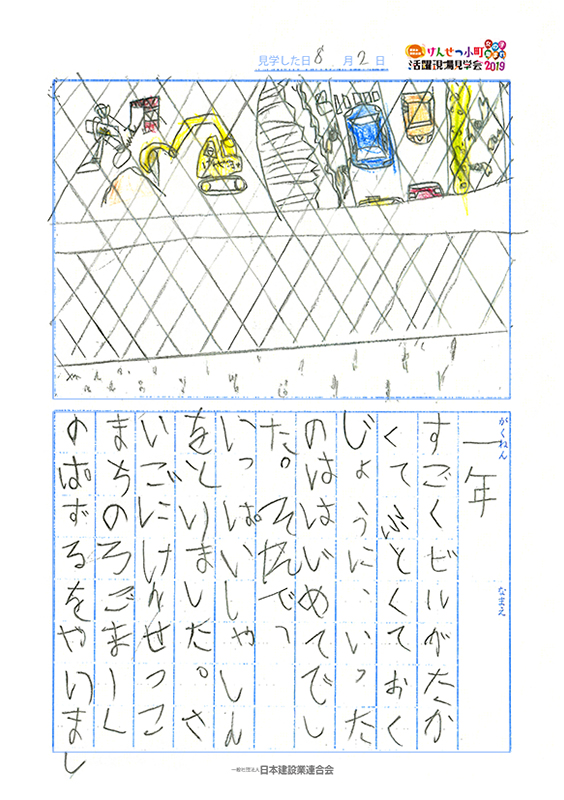 見学した日 8 月 2 日
けんせつ小町
活躍現場見学会 2019
けんせつ
がくねん
一年
なまえ
すごくビルがたか
くてふとくておく
じょうに、いった
のははじめてでし
た。そんで、
いっぱいしゃしん
をとりました。さ
いごにけんせつこ
まちのろごまーく
のぱずるをやりまし
一般社団法人 日本建設業連合会